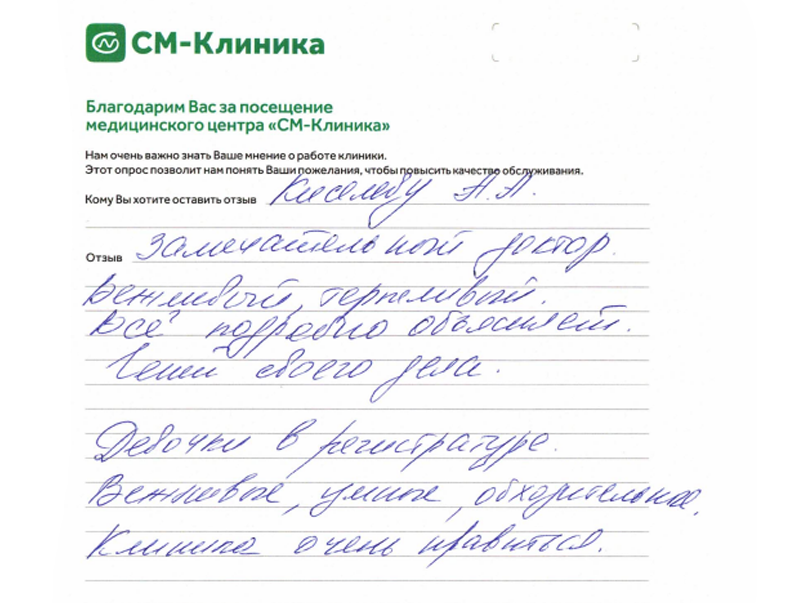 СМ-Клиника
Благодарим Вас за посещение
медицинского центра «СМ-Клиника»
Нам очень важно знать Ваше мнение о работе клиники.
Этот опрос позволит нам понять Ваши пожелания, чтобы повысить качество обслуживания.
Кому Вы хотите оставить отзыв Киселеву А.А.
Отзыв Замечательный доктор.
Вежливый, терпеливый.
Всё подробно объясняет.
Гений своего дела.
Девочки в регистратуре.
Вежливые, умные, обходительные.
Клиника очень нравиться.